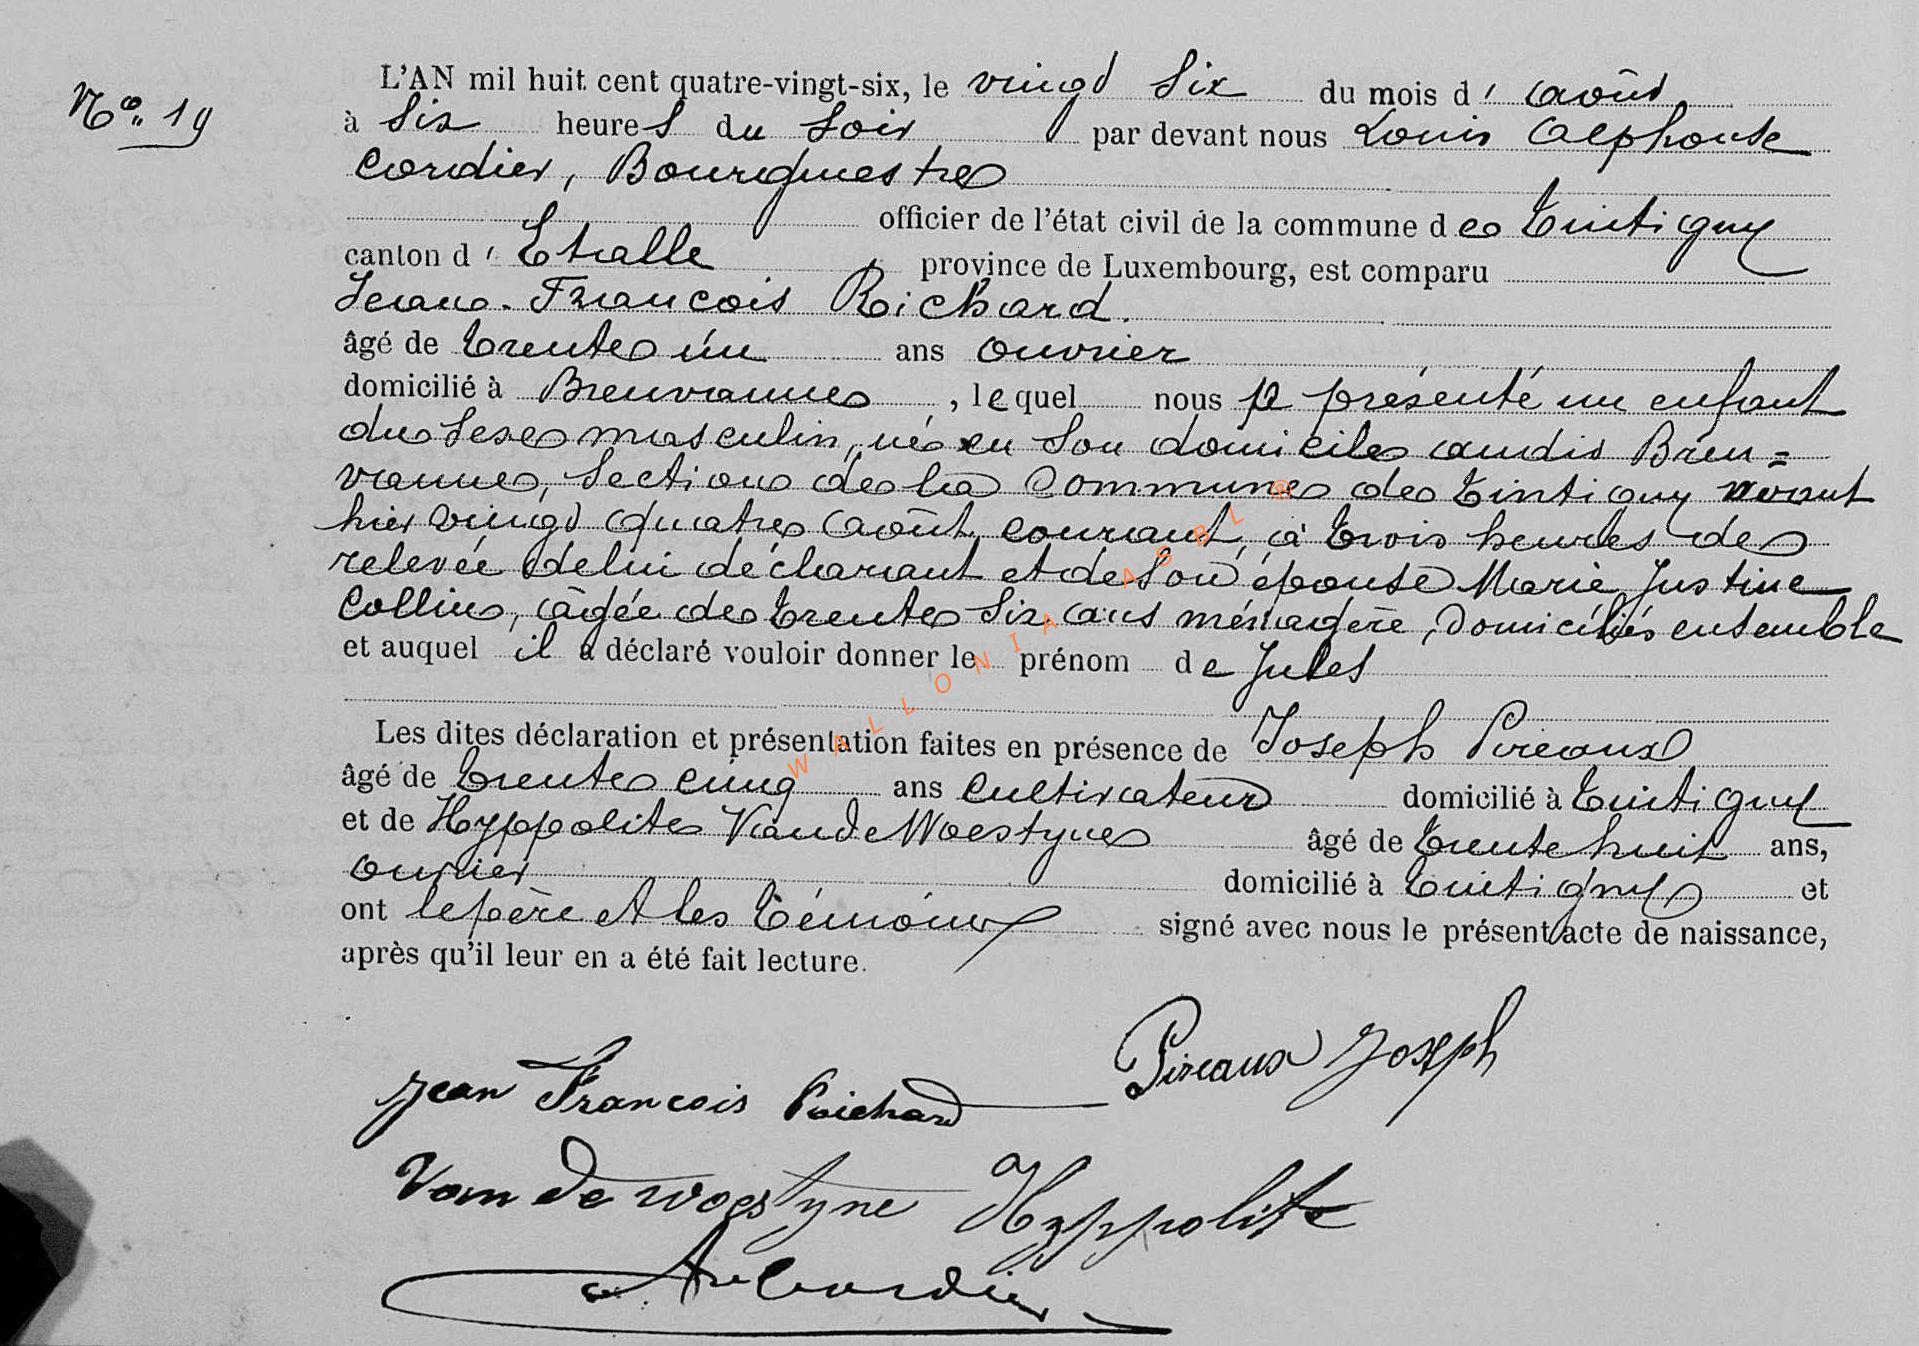 N° 19
L'AN mil huit cent quatre-vingt-six, le vingt six du mois d' août
à Six heures du Soir par devant nous Louis Alphonse
Cordier, Bourgmestre
officier de l'état civil de la commune de Tintigny
canton d' Etalle province de Luxembourg, est comparu
Jean-François Richard.
âgé de trente un ans ouvrier
domicilié à Breuvanne, lequel nous a présenté un enfant
du Sexe masculin, né en Son domicile audit Breu=
vanne, Section de la Commune de Tintigny avant
hier vingt quatre août courant, à trois heures de
relevée de lui déclarant et de Son épouse Marie Justine
Collin, âgée de trente Six ans ménagère, Domiciliés ensemble
et auquel il a déclaré vouloir donner le prénom de Jules
Les dites déclaration et présentation faites en présence de Joseph Pireaux
âgé de trente cinq ans Cultivateur domicilié à Tintigny
et de Hyppolite Van de Woestyne âgé de trente huit ans,
ouvrier domicilié à Tintigny et
ont le père et les témoins signé avec nous le présent acte de naissance,
après qu'il leur en a été fait lecture.
Pireaux Joseph
Jean François Richard
Van De Woestyne Hyppolite
Cordier
WALLONIA ASBL ®